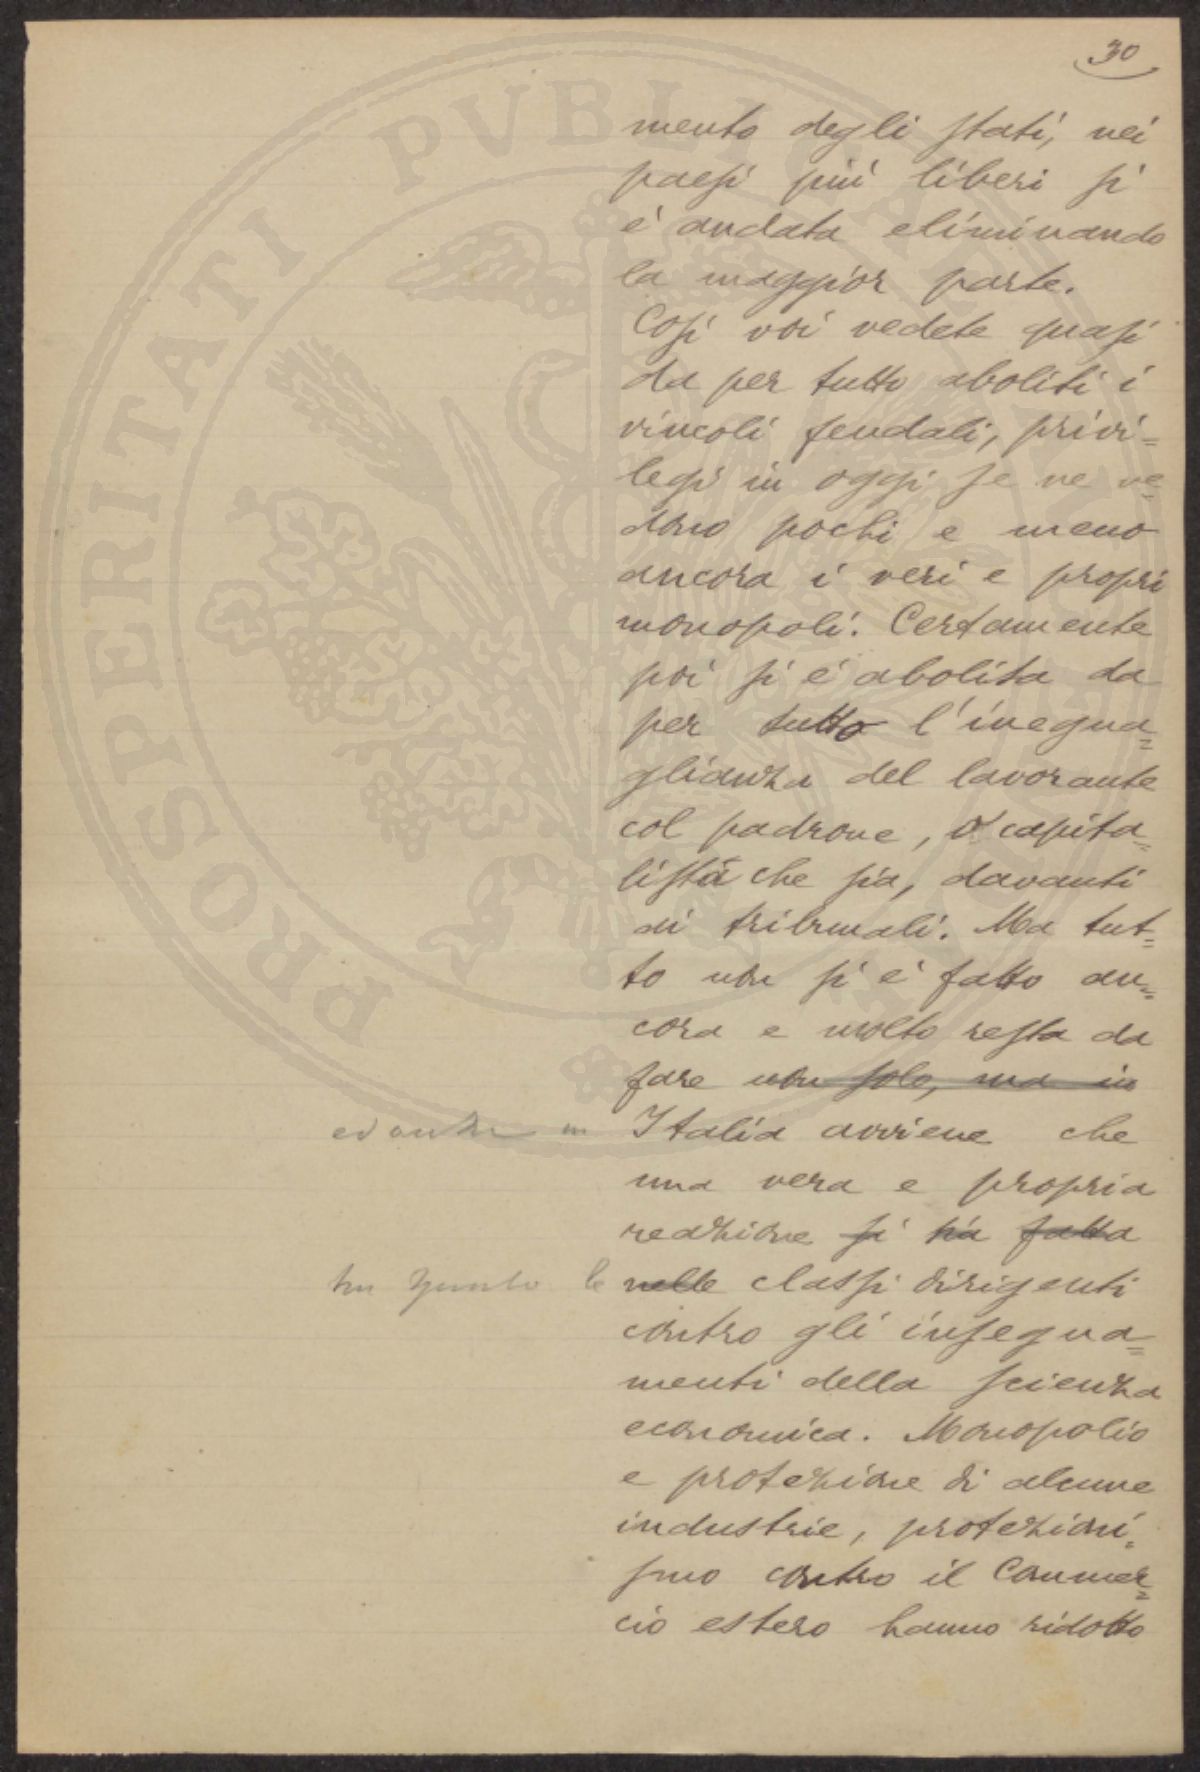 30
mento degli stati, nei
paesi più liberi si
è andata eliminando
la maggior parte.
Così voi vedete quasi
da per tutto aboliti i
vincoli feudali, privi=
legi in oggi se ne ve=
dono pochi e meno
ancora i veri e propri
monopoli. Certamente
poi si è abolita da
per tutto l'inegua=
glianza del lavorante
col padrone, o capita=
lista che sia, davanti
ai tribunali. Ma tut=
to non si è fatto an=
cora e molto resta da
fare non solo, ma in
ed anche in Italia avviene che
una vera e propria
reazione si sia fatta
le nelle classi dirigenti
contro gli insegna=
menti della scienza
economica. Monopolio
e protezione di alcune
industrie, protezioni=
smo contro il Commer=
cio estero hanno ridotto
PROSPERITATI PVBLICAE